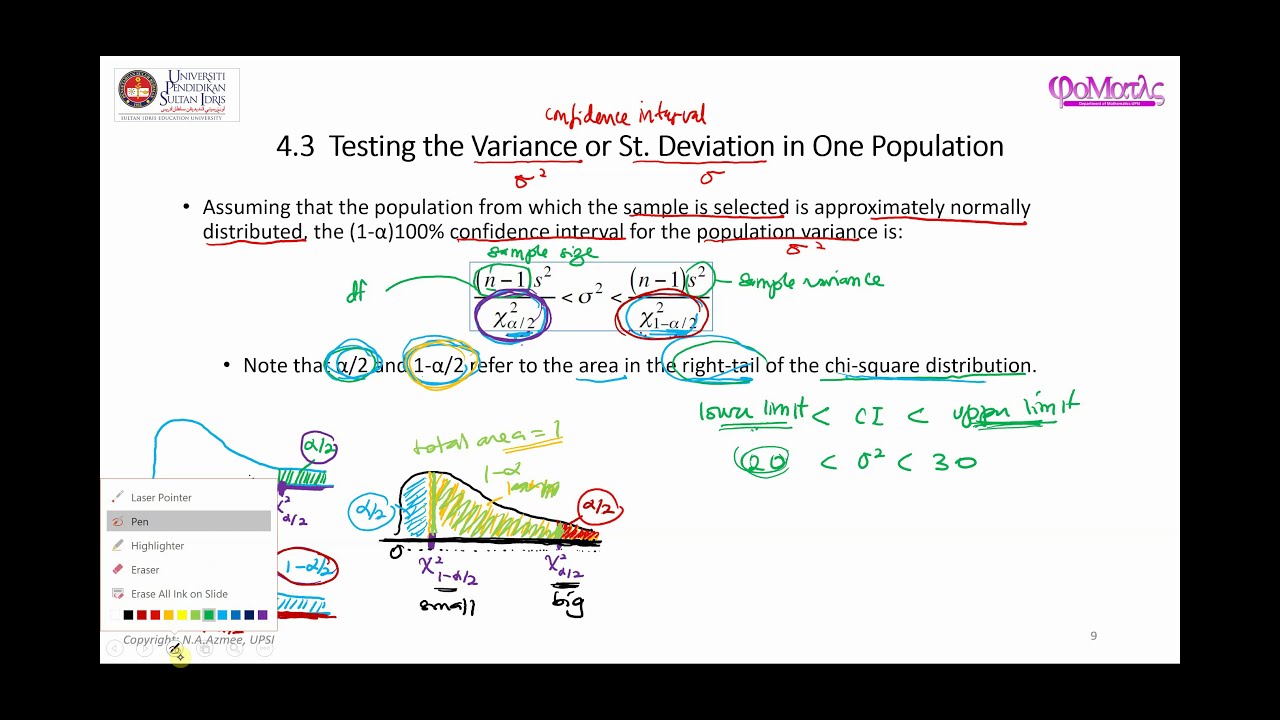 UNIVERSITI
PENDIDIKAN
SULTAN IDRIS
اونيۏرسيتي ڤنديديقن سلطان ادريس
SULTAN IDRIS EDUCATION UNIVERSITY
φοΜατλς
Department of Mathematics UPSI
confidence interval
4.3 Testing the Variance or St. Deviation in One Population
σ² σ
• Assuming that the population from which the sample is selected is approximately normally
distributed, the (1-α)100% confidence interval for the population variance is:
σ²
sample size
df (n − 1)s² / χ²α/2 < σ² < (n − 1)s² / χ²1−α/2 sample variance
• Note that α/2 and 1-α/2 refer to the area in the right-tail of the chi-square distribution.
lower limit < CI < upper limit
20 < σ² < 30
α/2
χ²α/2
1-α/2
total area = 1
1-α
α/2 α/2
0
χ²1-α/2 χ²α/2
small big
Laser Pointer
Pen
Highlighter
Eraser
Erase All Ink on Slide
Copyright: N.A.Azmee, UPSI
9